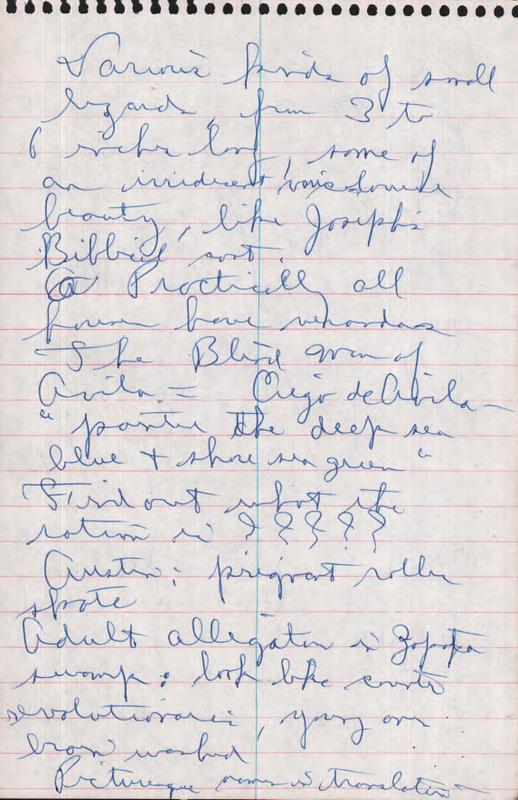 Various kinds of small
lizards, from 3 to
6 inches long, some of
an irridescent
beauty, like Joseph's
Biblical coat.
Practically all
houses have verandas
The Blind man of
Avila = Ciego de Avila -
"painter the deep sea
blue + shore sea green"
Find out what the
ration is ? ? ? ? ?
Austin: pregnant roller
skate
Adult alligator in Zapata
swamp: look like counter
revolutionaries, young ones
brain washed
Picturesque names in translation